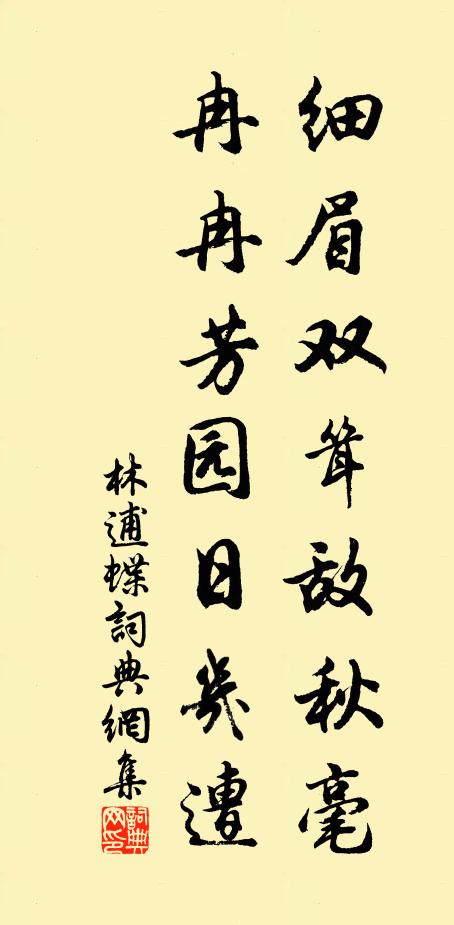 细眉双耸敌秋毫
冉冉芳园日几遭
林逋蝶詞典網集
詞典網印